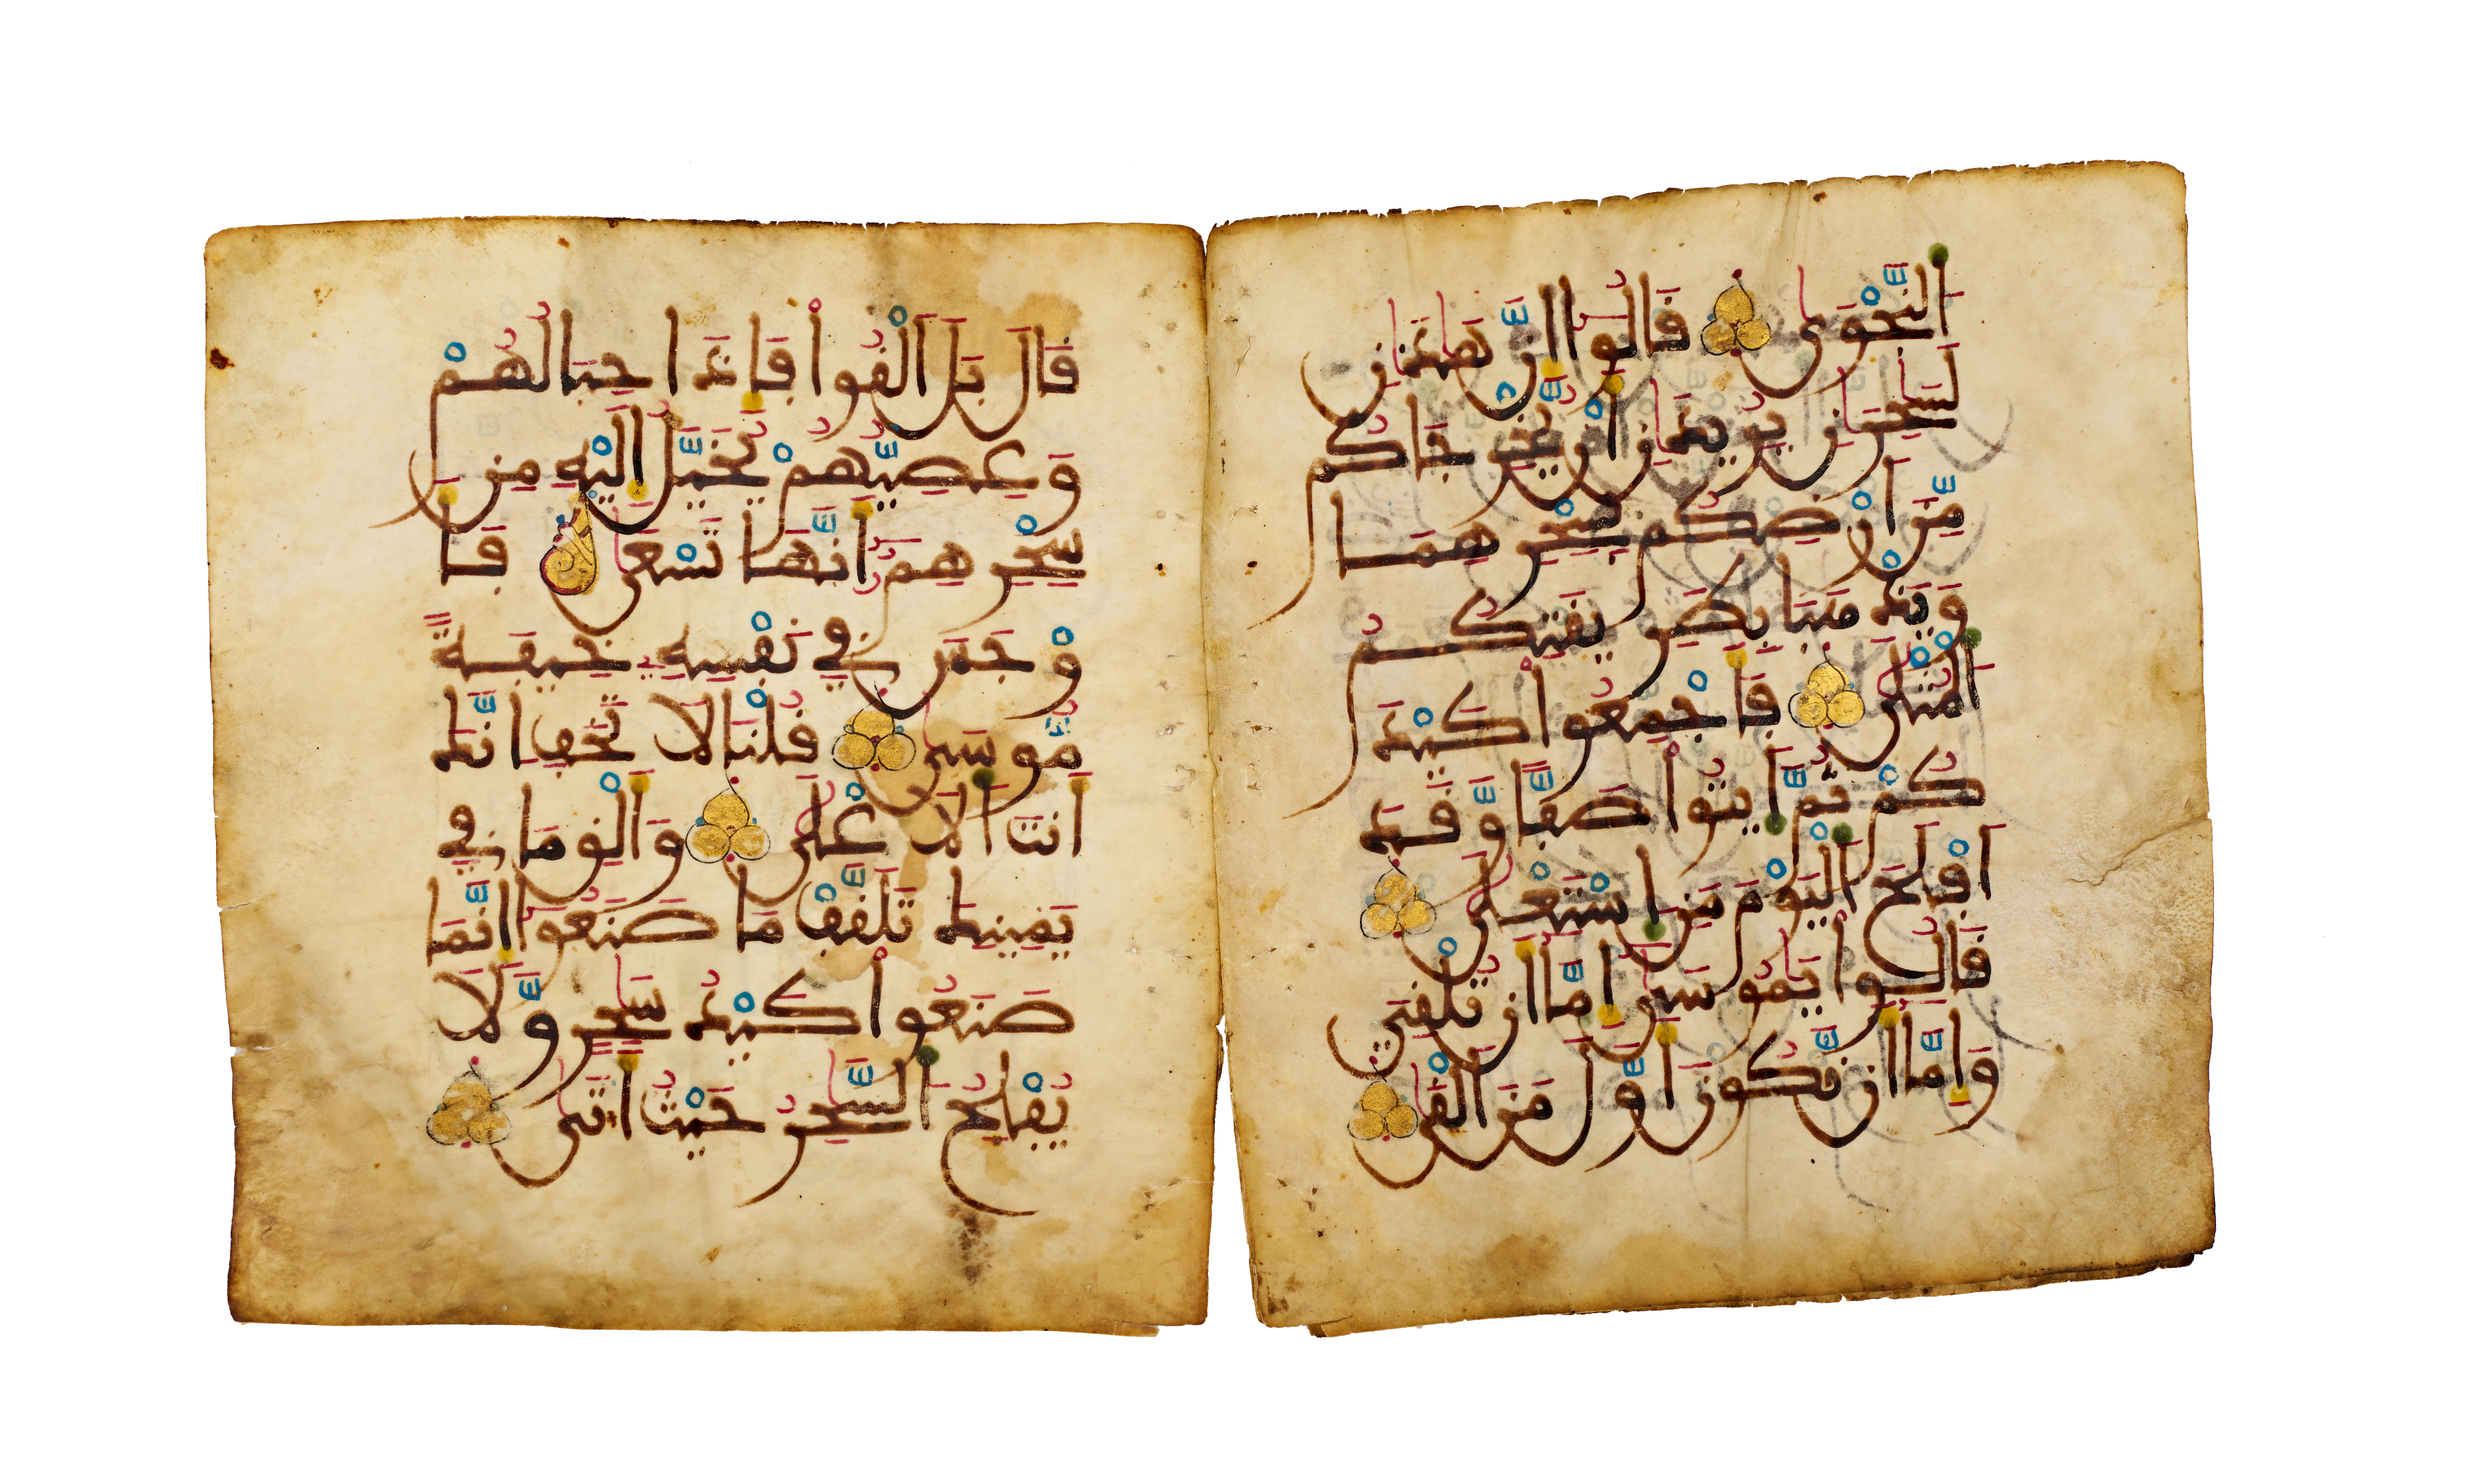 اَ۬لنَّجْوَىٰ قَالُواْ إِنَّ هَٰذَٰنِ
لَسَٰحِرَٰنِ يُرِيدَٰنِ أَنْ يُّخْرِجَٰكُم
مِّنَ اَرْضِكُم بِسِحْرِهِمَا
وَيَذْهَبَا بِطَرِيقَتِكُمُ
اُ۬لْمُثْلَىٰ فَأَجْمِعُواْ كَيْدَ
كُمْ ثُمَّ اَ۪يتُواْ صَفّاً وَّقَدَ
اَفْلَحَ اَ۬لْيَوْمَ مَنِ اِ۪سْتَعْلَىٰ
قَالُواْ يَٰمُوسَىٰ إِمَّا أَن تُلْقِيَ
وَإِمَّا أَن نَّكُونَ أَوَّلَ مَنَ اَلْقَىٰ
قَالَ بَلَ اَلْقُواْ فَإِذَا حِبَالُهُمْ
وَعِصِيُّهُمْ يُخَيَّلُ إِلَيْهِ مِن
سِحْرِهِمُ أَنَّهَا تَسْعَىٰ فَأَ
وْجَسَ فِي نَفْسِهِۦ خِيفَةً
مُّوسَىٰ قُلْنَا لَا تَخَفِ اِنَّكَ
أَنتَ اَ۬لَاعْلَىٰ وَأَلْقِ مَا فِي
يَمِينِكَ تَلَقَّفْ مَا صَنَعُواْ إِنَّمَا
صَنَعُواْ كَيْدُ سَٰحِرٍ وَّلَا
يُفْلِحُ اُ۬لسَّٰحِرُ حَيْثُ أَتَىٰ